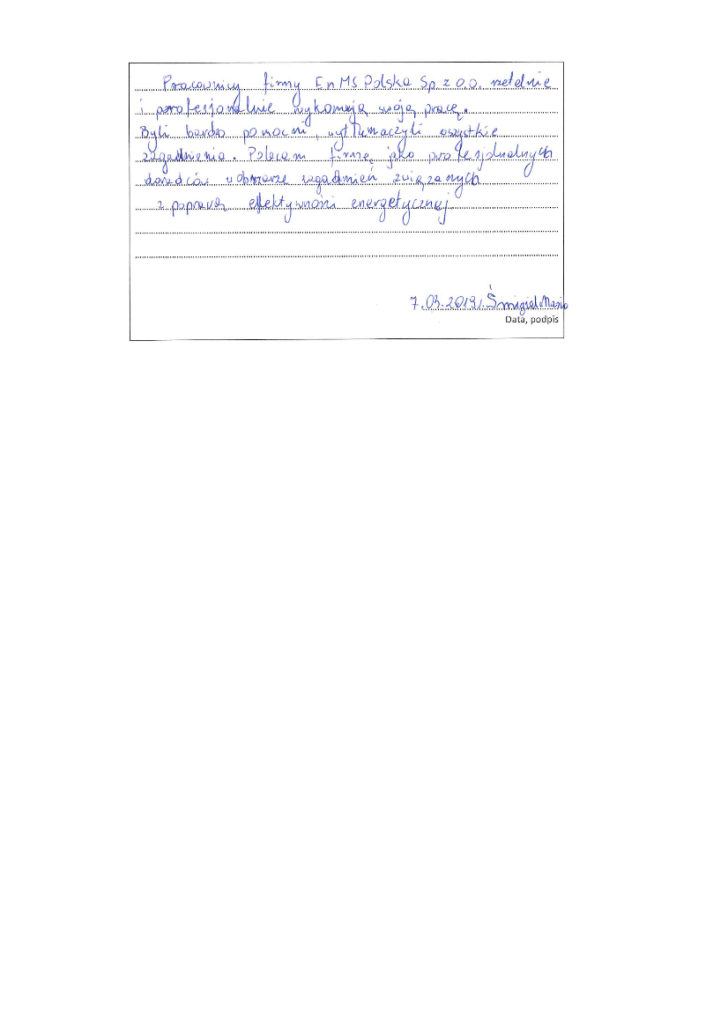 Pracownicy firmy EnMS Polska Sp. z o.o. rzetelnie
i profesjonalnie wykonują swoją pracę.
Byli bardzo pomocni, wytłumaczyli wszystkie
zagadnienia. Polecam firmę jako profesjonalnych
doradców w obszarze zagadnień związanych
z poprawą efektywności energetycznej.
7.03.2019r. Śmigiel Maria
Data, podpis